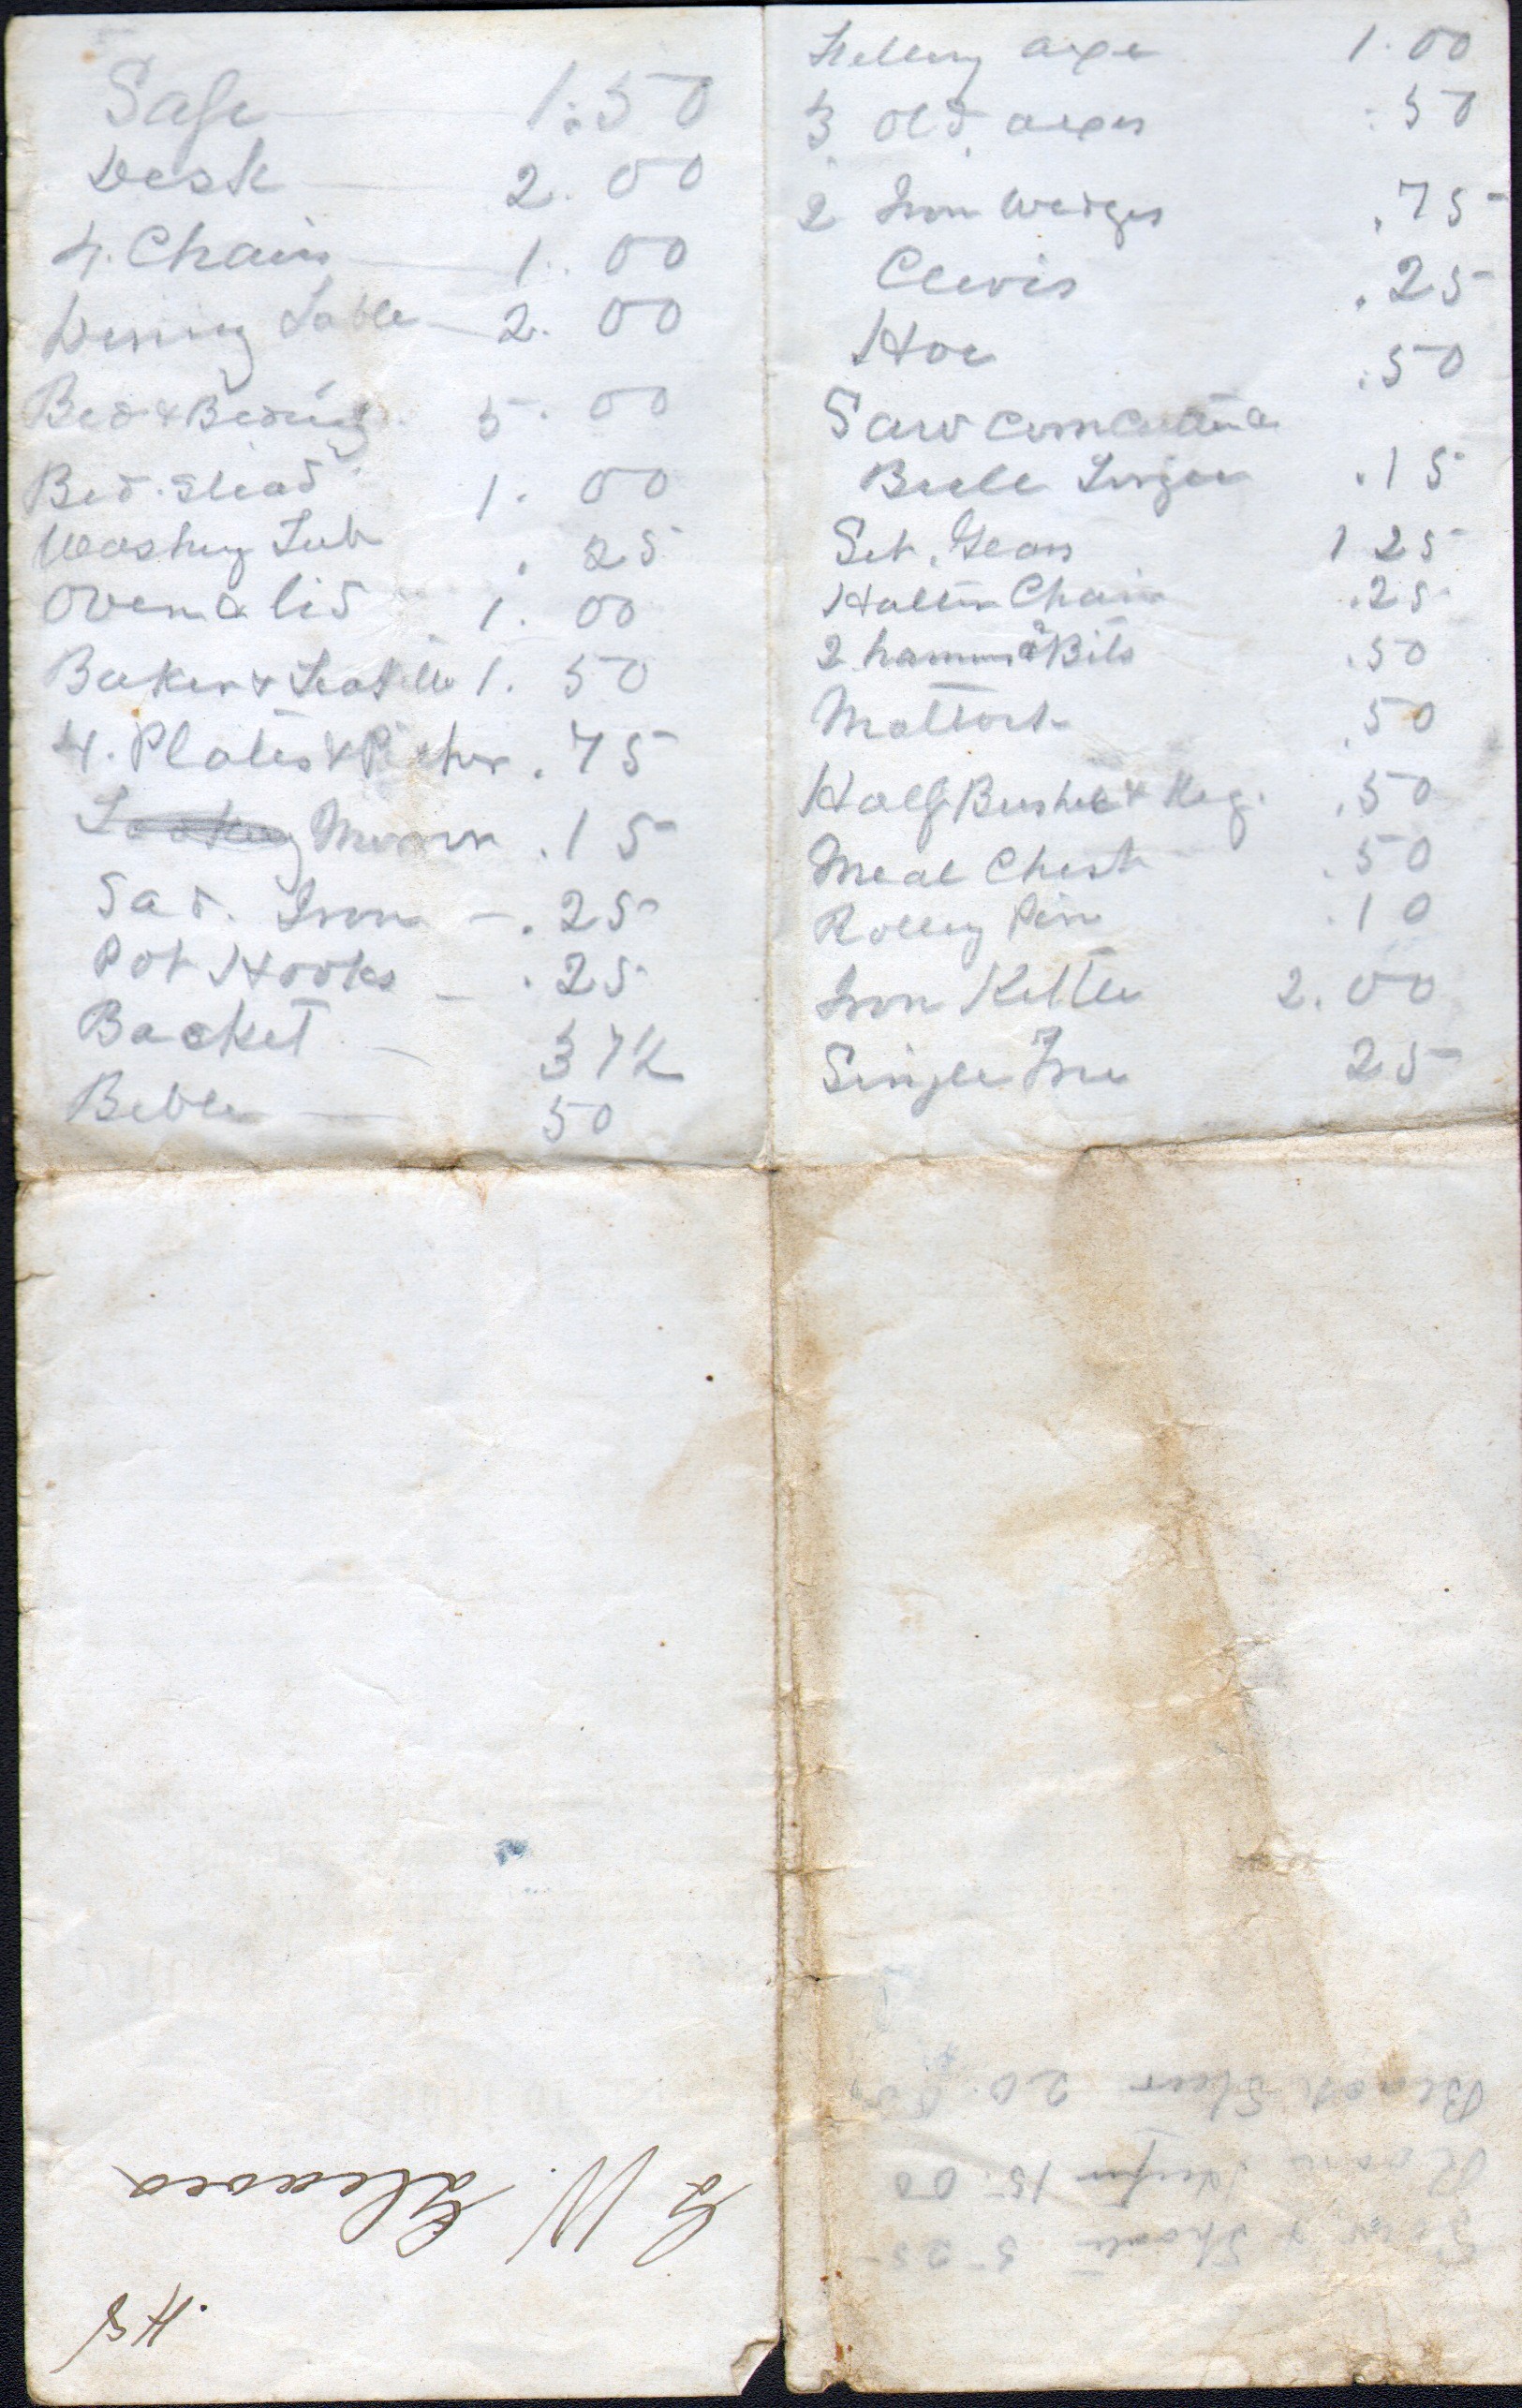 Safe 1.50
Desk 2.00
4. Chairs 1.00
Dining Table 2.00
Bed & Beding 5.00
Bed.stead 1.00
Washing Tub .25
Oven & lid 1.00
Baker & 1.50
4. Plates & Picher .75
Looking Mirror .15
Sad. Iron .25
Pot Hooks .25
Basket 37½
Bible 50
Felling axe 1.00
3 old axes .50
2 Iron Wedges .75
Clevis .25
Hoe .50
Saw
Bull .15
Set. Gears 1 25
Halter Chain .25
2 hammers & Bits .50
Mattock .50
Half Bushel & Keg. .50
Meal Chest .50
Rolling Pin .10
Iron Kettle 2.00
Single Tree 25
Black Steer 20.00
Roan Heifer 15.00
Sow & Shoats 5 25
G W. Gleaves